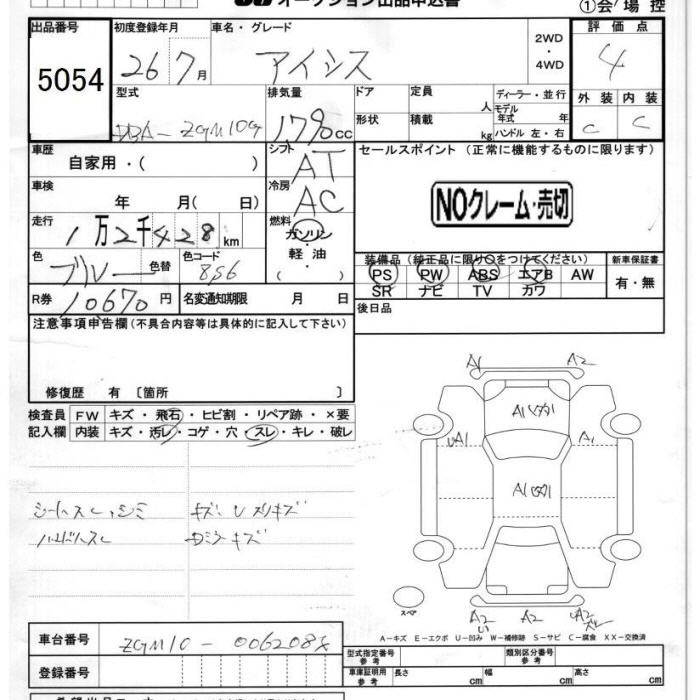 オークション出品申込書
①会場 控
出品番号 初度登録年月 車名・グレード 評価点
5054 26 7月 アイシス 2WD・4WD 4
型式 排気量 ドア 定員 人 ディーラー・並行 外装 内装
DBA-ZGM10G 1790cc 形状 積載 kg モデル年式 年 ハンドル 左・右 C C
車歴 シフト セールスポイント (正常に機能するものに限ります)
自家用・( ) AT
車検 冷房
年 月( 日) AC NOクレーム・売切
走行 燃料
1万2千428km ガソリン・軽油( )
色 色替 色コード 装備品(純正品に限り○をつけてください) 新車保証書
ブルー 8S6 PS PW ABS エアB AW 有・無
SR ナビ TV カワ
R券 10670円 名変通知期限 月 日 後日品
注意事項申告欄(不具合内容等は具体的に記入して下さい)
修復歴 有〔箇所 〕
検査員 FW キズ・飛石・ヒビ割・リペア跡・×要
記入欄 内装 キズ・汚レ・コゲ・穴・スレ・キレ・破レ
シートスレ,シミ キズ、U メリキズ
ハンドルスレ Dミラーキズ
A1 A2
A1
UA1 A1
A1
スペア
A2 A2 UA2
A－キズ E－エクボ U－凹み W－補修跡 S－サビ C－腐食 XX－交換済
車台番号 ZGM10-006208
登録番号
型式指定番号 参考 類別区分番号 参考
車庫証明用 参考 長さ cm 幅 cm 高さ cm